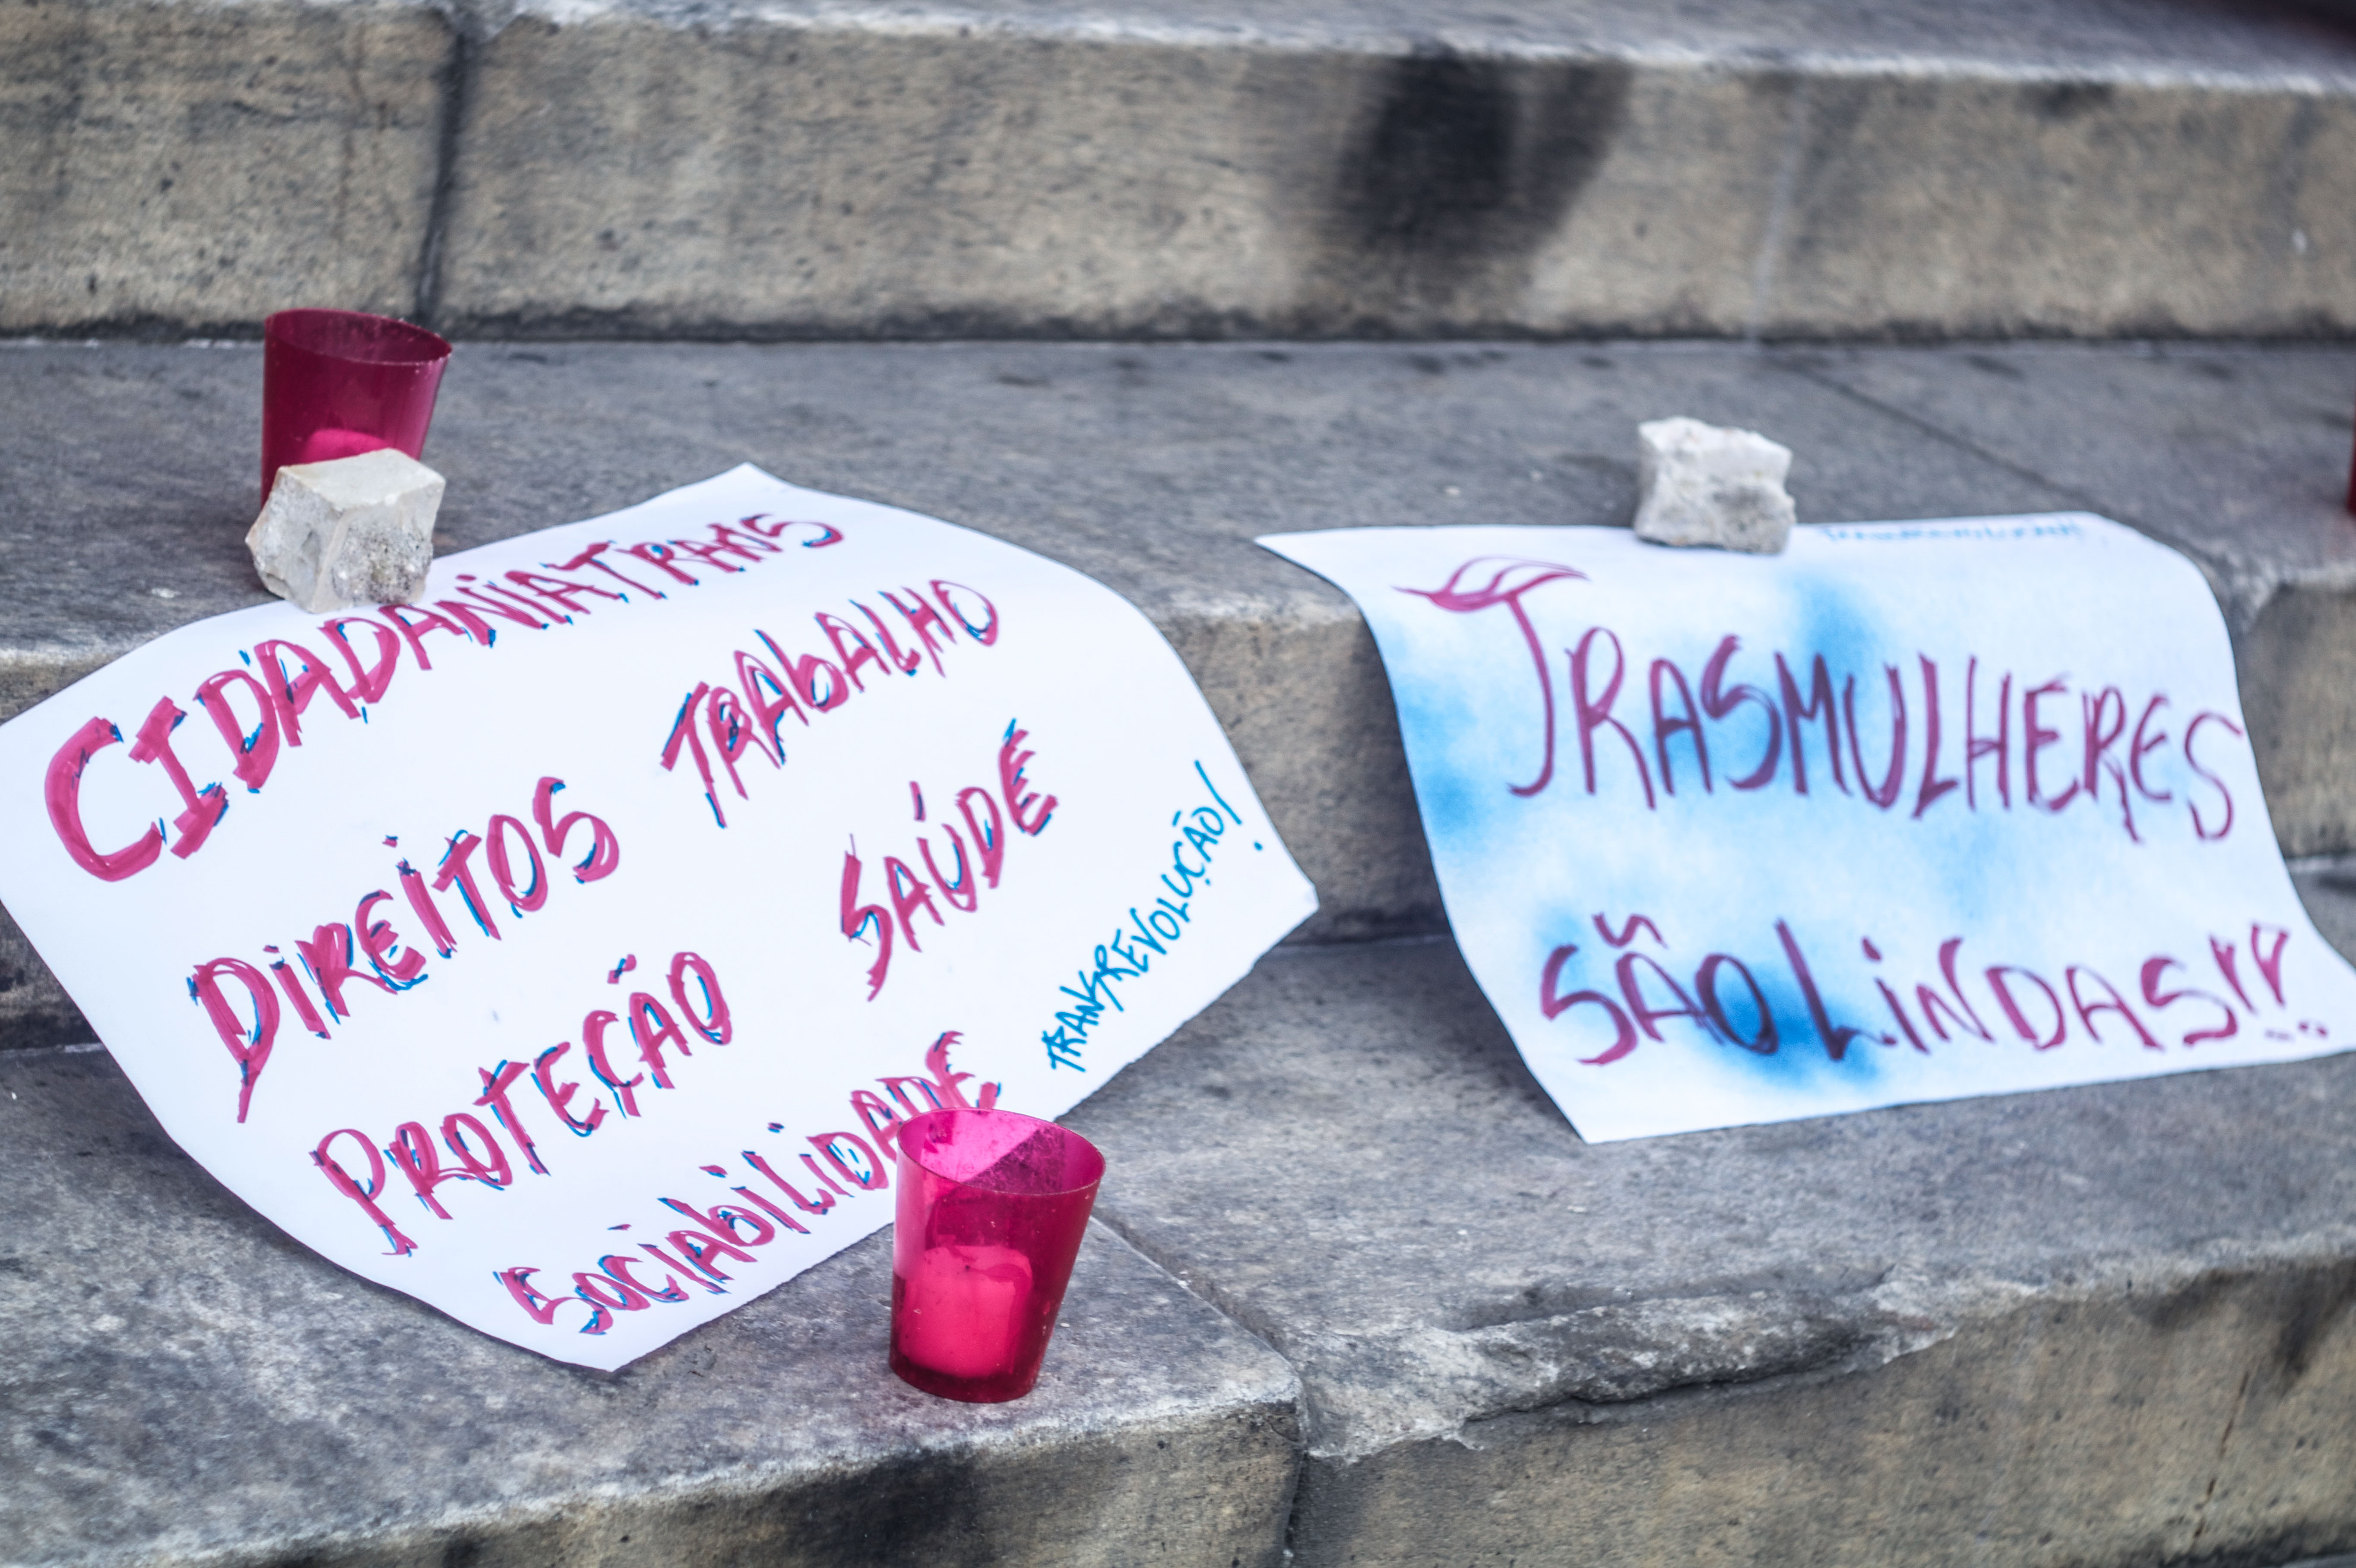 CIDADANIATRANS
TRABALHO
DIREITOS
SAÚDE
PROTEÇÃO
SOCIABILIDADE
TRANSREVOLUÇÃO!
TRASMULHERES
SÃO LINDAS!!